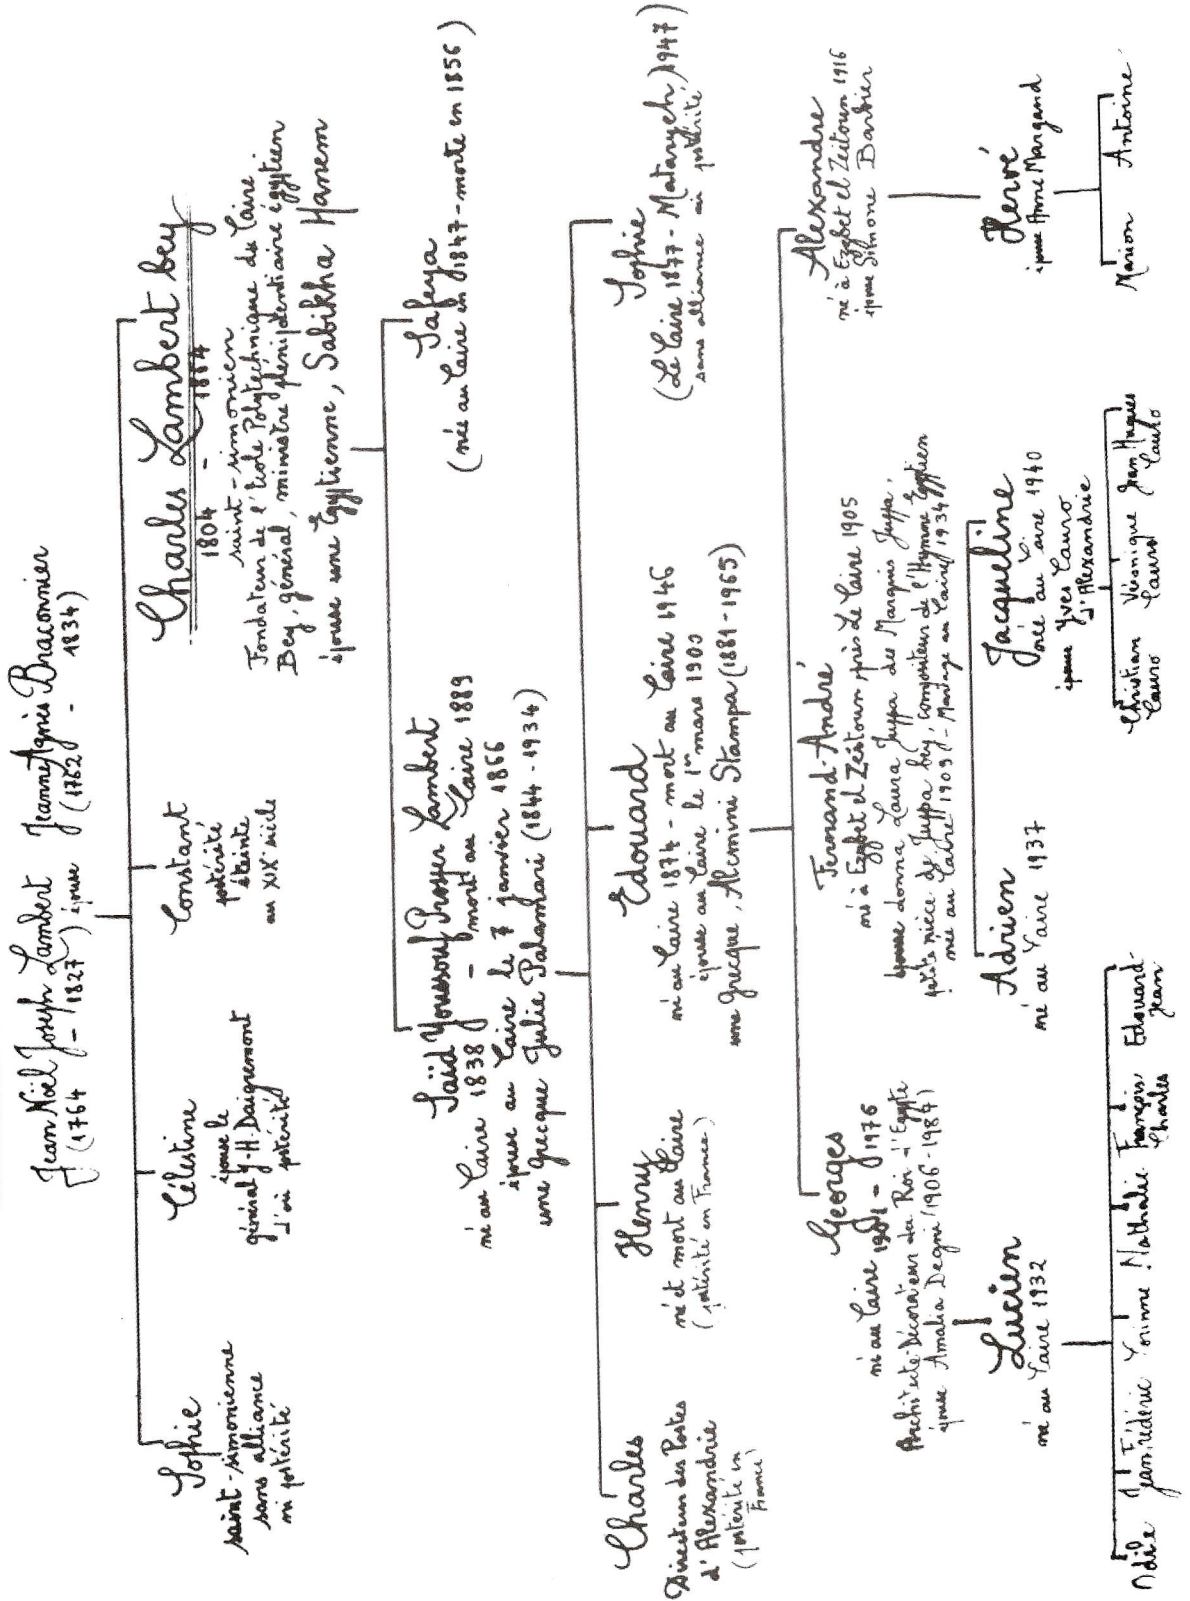 Jean Noël Joseph Lambert épouse Jeanne Agnès Braconnier
(1764 - 1827) (1762 - 1834)
Sophie
saint-simonienne
sans alliance
ni postérité
Célestine
épouse le
général y.H. Daigremont
d'où postérité
Constant
postérité
éteinte
au XIXe siècle
Charles Lambert bey
1804 - 1864
saint-simonien
Fondateur de l'École Polytechnique du Caire.
Bey, général, ministre plénipotentiaire égyptien
épouse une Égyptienne, Sabikha Hanem
Saïd Youssouf Prosper Lambert
né au Caire 1838 - mort au Caire 1889
épouse au Caire le 7 janvier 1866
une grecque Julie (1844-1934)
Safeya
(née au Caire en 1847 - morte en 1856)
Charles
Directeur des Postes
d'Alexandrie
(postérité en
France)
Henry
né et mort au Caire
(postérité en France)
Edouard
né au Caire 1874 - mort au Caire 1946
épouse au Caire le 1er mars 1900
une Grecque, Alcmini Stampa (1881-1965)
Sophie
(Le Caire 1877 - Mataryeh) 1947
sans alliance ni postérité
Georges
né au Caire 1901 - 1976
Architecte-Décorateur du Roi d'Egypte
épouse Amalia Degni (1906-1987)
Fernand-André
né à Ezbet el Zeitoun près Le Caire 1905
épouse donna Laura Juppa des Marquis Juppa,
petite nièce de Juppa bey, compositeur de l'Hymne Egyptien
née au Caire 1909 - Mariage au Caire 1934
Alexandre
né à Ezbet el Zeitoun 1916
épouse Simone Barbier
Lucien
né au Caire 1932
Adrien
né au Caire 1937
Jacqueline
née au Caire 1940
épouse Yves Lauro
d'Alexandrie
Hervé
épouse Anne Margand
Odile Jean Frédéric Corinne Nathalie François-Charles Edouard-Jean
Christian Lauro Véronique Lauro Jean Hugues Lauro
Marion Antoine